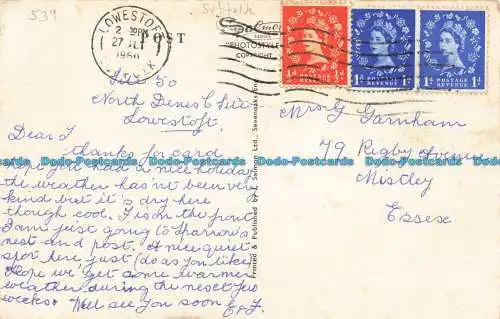 539
Suffolk
LOWESTOFT
2 30PM
27 JL
1960
SUFFOLK
POST
Salmon
SERIES
"PHOTOSTYLE"
COPYRIGHT
½d POSTAGE REVENUE ½d
1d POSTAGE REVENUE 1d
1d POSTAGE REVENUE 1d
Site 50
North Denes C Site
Lowestoft.
Dear I
thanks for card
hope you had a nice holiday
the weather has not been very
kind but it's dry here
though cool. I is on the front
I am just going to Sparrow's
nest and post. A nice quiet
spot here just (do as you like)
Hope we get some warmer
weather during the next few
weeks. Will see you soon
E & F.
Printed & Published by J. Salmon Ltd., Sevenoaks, Eng.
Mrs G Garnham
79 Rigby Avenue
Mistley
Essex
Dodo-Postcards Dodo-Postcards Dodo-Postcards Dodo-Postcards